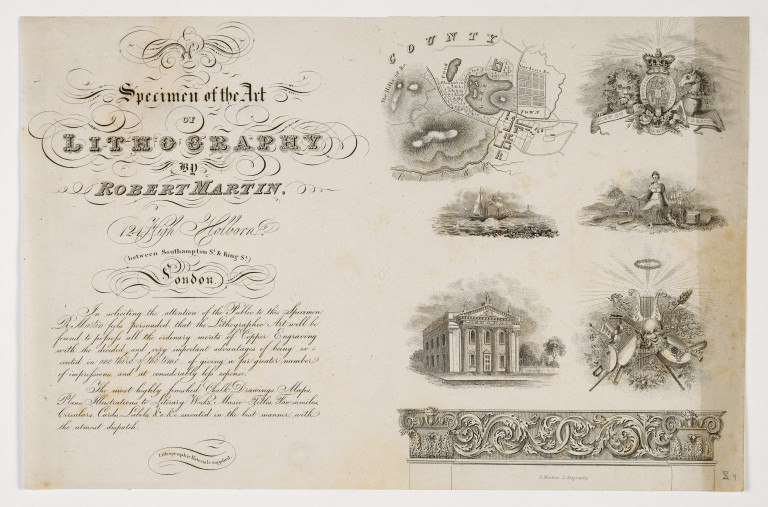 A
Specimen of the Art
OF
LITHOGRAPHY
BY
ROBERT MARTIN,
124, High Holborn,
(between Southampton St. & King St.)
London.
In soliciting the attention of the Public to this Specimen
R. Martin feels persuaded, that the Lithographic Art will be
found to possess all the ordinary merits of Copper Engraving
with the decided and very important advantages of being ex-
ecuted in one third of the time, of giving a far greater number
of impressions, and at considerably less expense.
The most highly finished Chalk Drawings, Maps,
Plans, Illustrations to Literary Works, Music Titles, Fac-similes,
Circulars, Cards, Labels, &c. &c. executed in the best manner, with
the utmost dispatch.
Lithographic Materials supplied.
COUNTY
TOWN
R. Martin Lithography